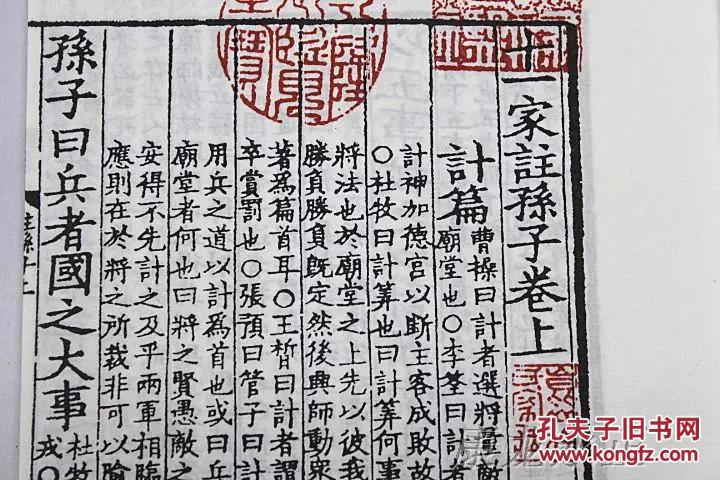 十一家註孫子卷上
計篇
曹操曰計者選將量敵
廟堂也〇李筌曰計者
計神加德宮以斷主客成敗故
〇杜牧曰計筭也曰計筭何事
將法也於廟堂之上先以彼我
勝負勝負既定然後興師動衆
著爲篇首耳〇王晳曰計者謂
卒賞罰也〇張預曰管子曰計
用兵之道以計爲首也或曰兵
廟堂者何也曰將之賢愚敵之
安得不先計之及乎兩軍相臨
應則在於將之所裁非可以隃
孫子曰兵者國之大事
杜牧
戎〇
孔夫子旧书网
kongfz.com